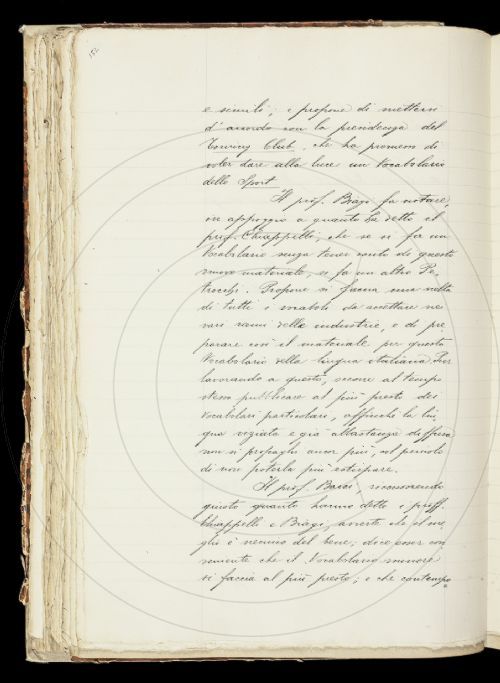 e simili; e propone di mettersi
d'accordo con la presidenza del
Touring Club, che ha promesso di
voler dare alla luce un Vocabolario
dello Sport
Il prof. Biagi fa notare,
in appoggio a quanto ha detto il
prof. Chiappelli, che se si fa un
Vocabolario senza tener conto di questo
nuovo materiale, si fa un altro Pe-
trocchi. Propone si faccia una scelta
di tutti i vocaboli da accettare nei
vari rami delle industrie, e di pre-
parare così il materiale per questo
Vocabolario della lingua italiana. Pur
lavorando a questo, occorre al tempo
stesso pubblicare al più presto dei
Vocabolari particolari, affinchè la lin-
gua viziata e già abbastanza diffusa
non si propaghi ancor più, col pericolo
di non poterla più estirpare.
Il prof. Bacci, riconoscendo
giusto quanto hanno detto i proff.
Chiappelli e Biagi, avverte che il me-
glio è nemico del bene; dice esser con
veniente che il Vocabolario minore
si faccia al più presto; e che contempo